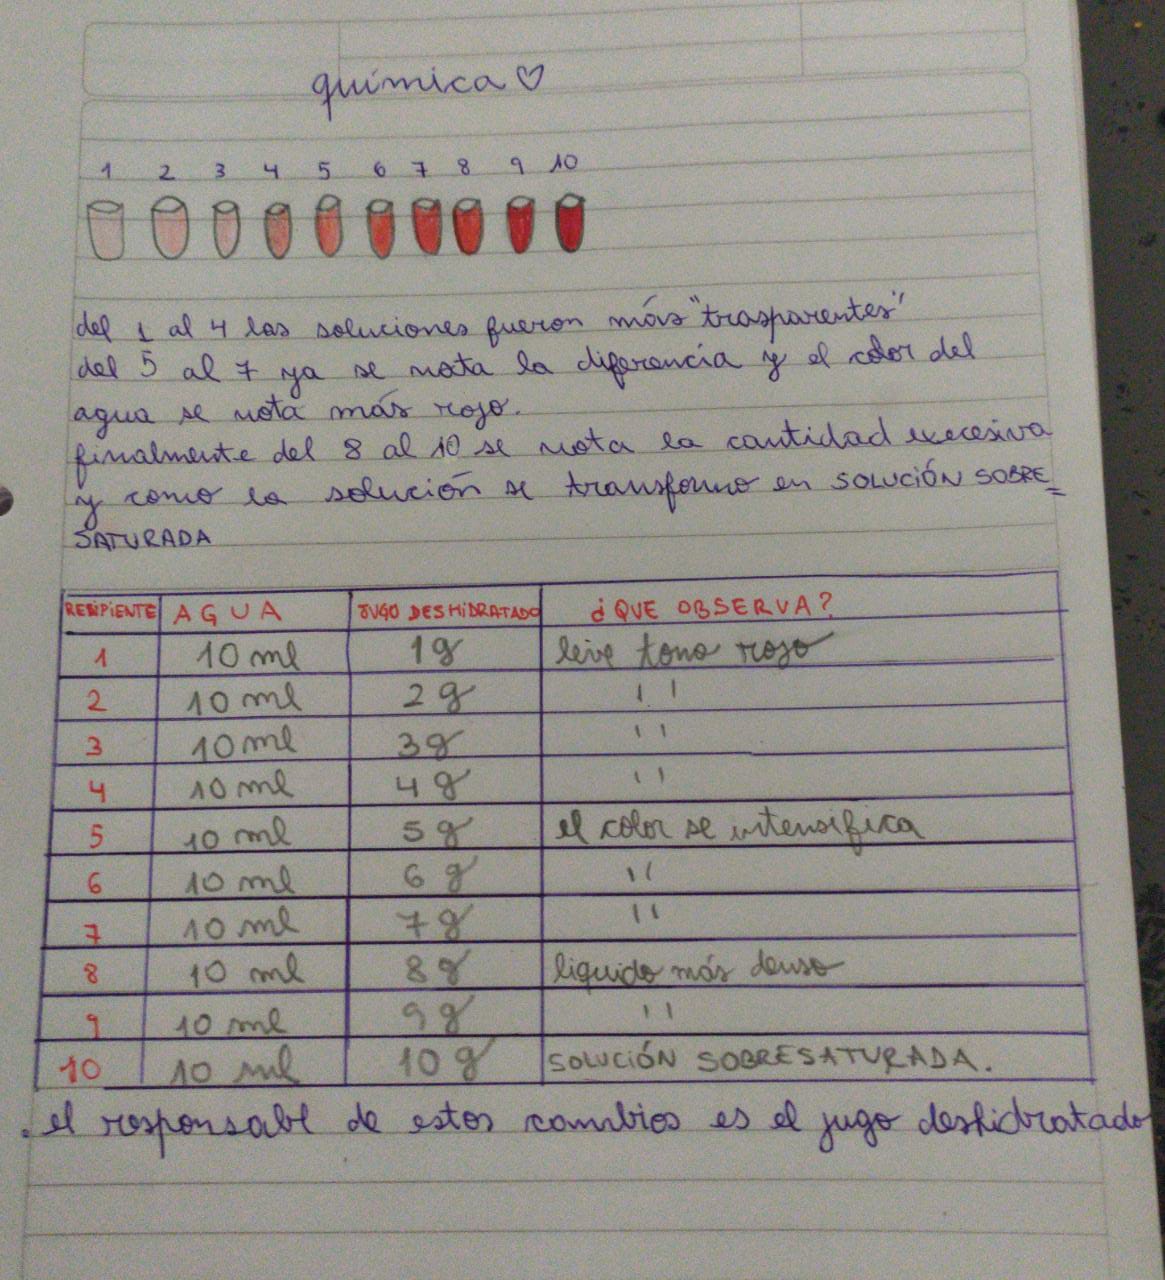 química ♡
1 2 3 4 5 6 7 8 9 10
del 1 al 4 las soluciones fueron más "trasparentes"
del 5 al 7 ya se nota la diferencia y el color del
agua se nota más rojo.
finalmente del 8 al 10 se nota la cantidad execesiva
y como la solución se transformo en SOLUCIÓN SOBRE=
SATURADA
RECIPIENTE AGUA JUGO DESHIDRATADO ¿QUE OBSERVA?
1 10 ml 1g leve tono rojo
2 10 ml 2g ''
3 10 ml 3g ''
4 10 ml 4g ''
5 10 ml 5g el color se intensifica
6 10 ml 6g ''
7 10 ml 7g ''
8 10 ml 8g liquido más denso
9 10 ml 9g ''
10 10 ml 10g SOLUCIÓN SOBRESATURADA.
. el responsabl de estos cambios es el jugo deshidratado